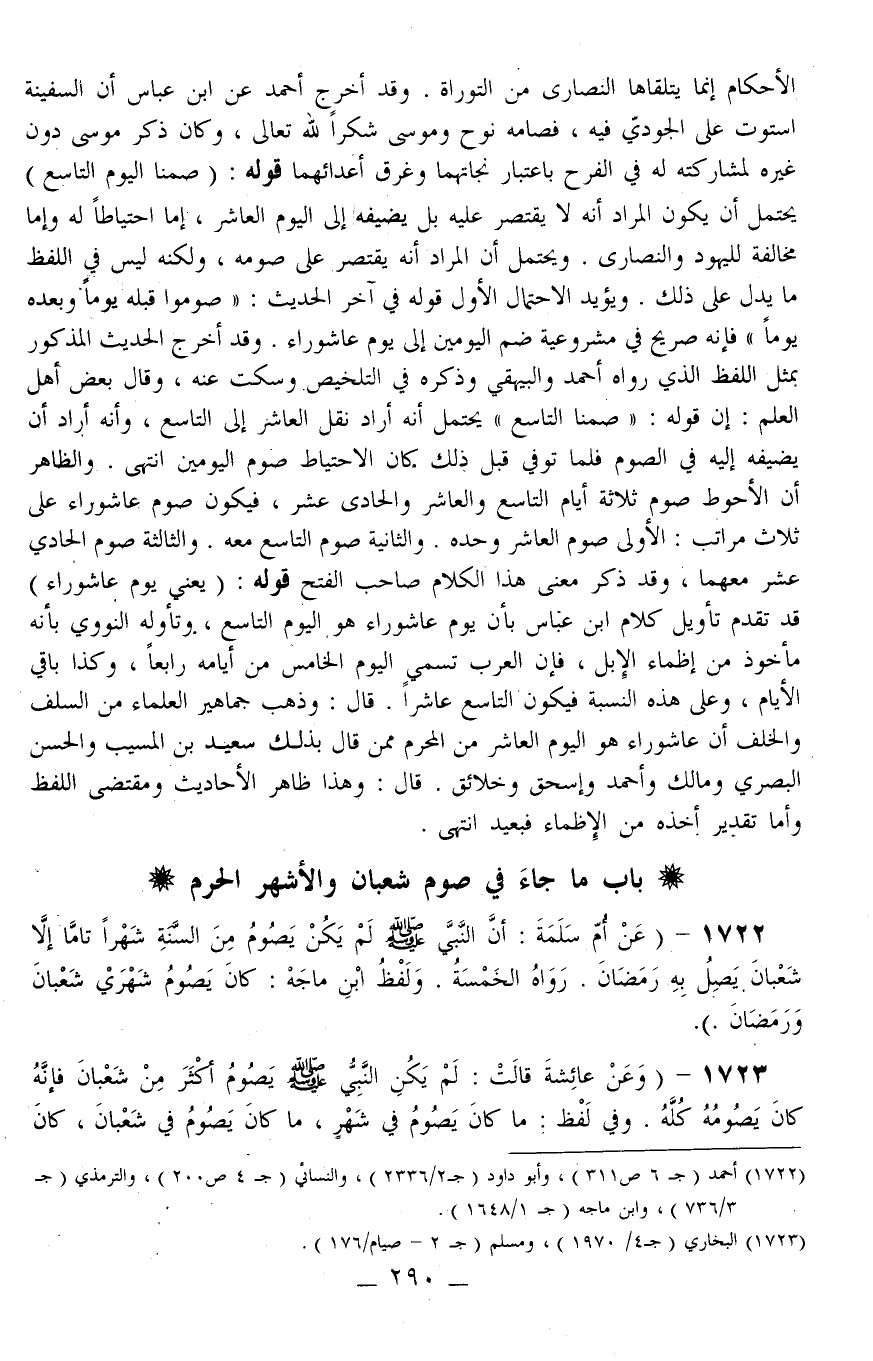 الأحكام إنما يتلقاها النصارى من التوراة . وقد أخرج أحمد عن ابن عباس أن السفينة
استوت على الجوديّ فيه ، فصامه نوح وموسى شكراً لله تعالى ، وكان ذكر موسى دون
غيره لمشاركته له في الفرح باعتبار نجاتهما وغرق أعدائهما قوله : ( صمنا اليوم التاسع )
يحتمل أن يكون المراد أنه لا يقتصر عليه بل يضيفه إلى اليوم العاشر ، إما احتياطاً له وإما
مخالفة لليهود والنصارى . ويحتمل أن المراد أنه يقتصر على صومه ، ولكنه ليس في اللفظ
ما يدل على ذلك . ويؤيد الاحتمال الأول قوله في آخر الحديث : « صوموا قبله يوماً وبعده
يوماً » فإنه صريح في مشروعية ضم اليومين إلى يوم عاشوراء . وقد أخرج الحديث المذكور
بمثل اللفظ الذي رواه أحمد والبيهقي وذكره في التلخيص وسكت عنه ، وقال بعض أهل
العلم : إن قوله : « صمنا التاسع » يحتمل أنه أراد نقل العاشر إلى التاسع ، وأنه أراد أن
يضيفه إليه في الصوم فلما توفي قبل ذلك كان الاحتياط صوم اليومين انتهى . والظاهر
أن الأحوط صوم ثلاثة أيام التاسع والعاشر والحادى عشر ، فيكون صوم عاشوراء على
ثلاث مراتب : الأولى صوم العاشر وحده . والثانية صوم التاسع معه . والثالثة صوم الحادي
عشر معهما ، وقد ذكر معنى هذا الكلام صاحب الفتح قوله : ( يعني يوم عاشوراء )
قد تقدم تأويل كلام ابن عباس بأن يوم عاشوراء هو اليوم التاسع ، وتأوله النووي بأنه
مأخوذ من إظماء الإبل ، فإن العرب تسمي اليوم الخامس من أيامه رابعاً ، وكذا باقي
الأيام ، وعلى هذه النسبة فيكون التاسع عاشراً . قال : وذهب جماهير العلماء من السلف
والخلف أن عاشوراء هو اليوم العاشر من المحرم ممن قال بذلك سعيد بن المسيب والحسن
البصري ومالك وأحمد وإسحق وخلائق . قال : وهذا ظاهر الأحاديث ومقتضى اللفظ
وأما تقدير أخذه من الإظماء فبعيد انتهى .
باب ما جاءَ في صوم شعبان والأشهر الحرم
١٧٢٢ – ( عَنْ أُمّ سَلَمَةَ : أنَّ النَّبِيَّ ﷺ لَمْ يَكُنْ يَصُومُ مِنَ السَّنَةِ شَهْراً تامَّا إلَّا
شَعْبانَ يَصِلُ بِهِ رَمَضَانَ . رَوَاهُ الخَمْسَةُ . وَلَفْظُ ابْنِ ماجَهْ : كانَ يَصُومُ شَهْرَيْ شَعْبانَ
وَرَمَضَانَ .).
١٧٢٣ – ( وَعَنْ عائِشةَ قالَتْ : لَمْ يَكُنِ النَّبِيُّ ﷺ يَصُومُ أكْثَرَ مِنْ شَعْبانَ فإنَّهُ
كانَ يَصُومُهُ كُلَّهُ . وفي لَفْظ : ما كانَ يَصُومُ في شَهْرٍ ، ما كانَ يَصُومُ في شَعْبانَ ، كانَ
(١٧٢٢) أحمد ( جـ ٦ ص٣١١ ) ، وأبو داود ( جـ٢/ ٢٣٣٦ ) ، والنسائي ( جـ ٤ ص٢٠٠ ) ، والترمذي ( جـ
٣/ ٧٣٦ ) ، وابن ماجه ( جـ ١/ ١٦٤٨ ) .
(١٧٢٣) البخاري ( جـ٤/ ١٩٧٠ ) ، ومسلم ( جـ ٢ – صيام/١٧٦ ) .
– ٢٩٠ –